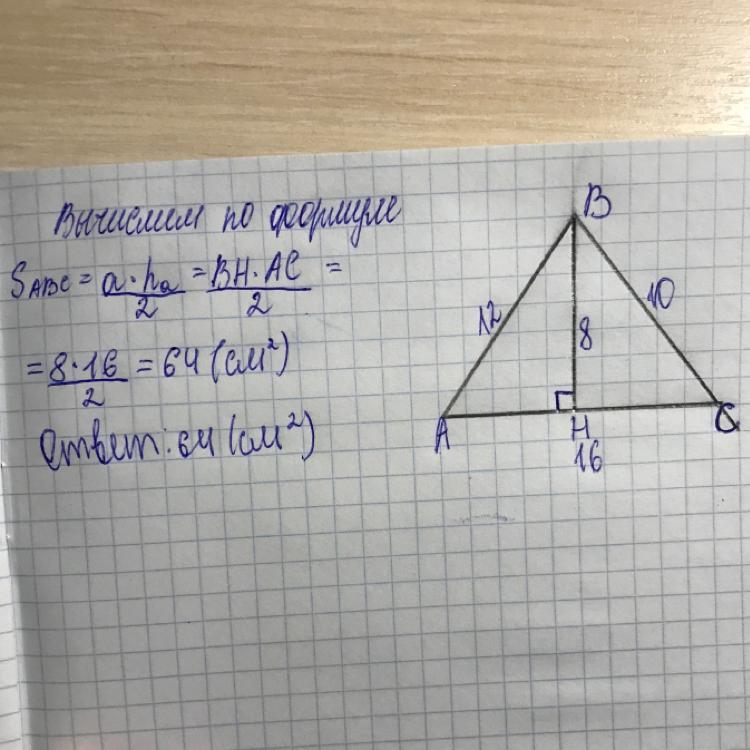 Вычислим по формуле
S_ABC = a·hₐ/2 = BH·AC/2 =
= 8·16/2 = 64 (см²)
Ответ: 64 (см²)
B
12
8
10
A
H
C
16